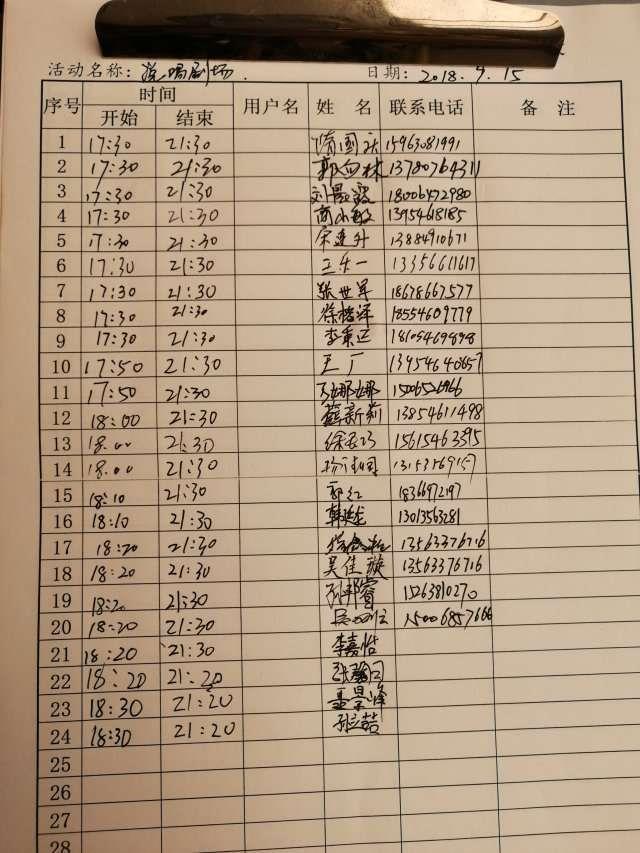 活动名称: 说唱剧场. 日期: 2018.9.15
序号 时间 用户名 姓 名 联系电话 备 注
开始 结束
1 17:30 21:30 隋国 15963081991
2 17:30 21:30 郭向林 13780764311
3 17:30 21:30 刘 18006472980
4 17:30 21:30 商小敏 13954618185
5 17:30 21:30 宋连升 13884910671
6 17:30 21:30 王乐一 13356611617
7 17:30 21:30 张世军 18678667577
8 17:30 21:30 徐 18554609779
9 17:30 21:30 李秉
10 17:50 21:30 王广
11 17:50 21:30 娜娜
12 18:00 21:30 薛新莉 13854611498
13 18.00 21:30 徐 15615463595
14 18.00 21:30
15 18:10 21:30 郭红 18366972197
16 18:10 21:30 韩 13013563281
17 18:20 21:30 13563376716
18 18:20 21:30 吴佳璇 13563376716
19 18:20 21:30 孙邦睿 15263810270
20 18:20 21:30 15006857666
21 18:20 21:30 李嘉怡
22 18:20 21:20 张
23 18:30 21:20 孟景峰
24 18:30 21:20 孙立喆
25
26
27
28